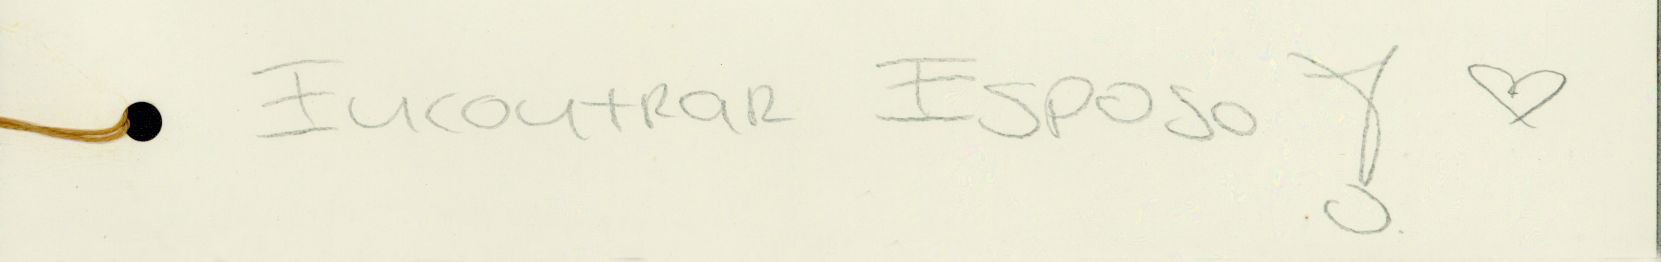 Encontrar Esposo! ♡